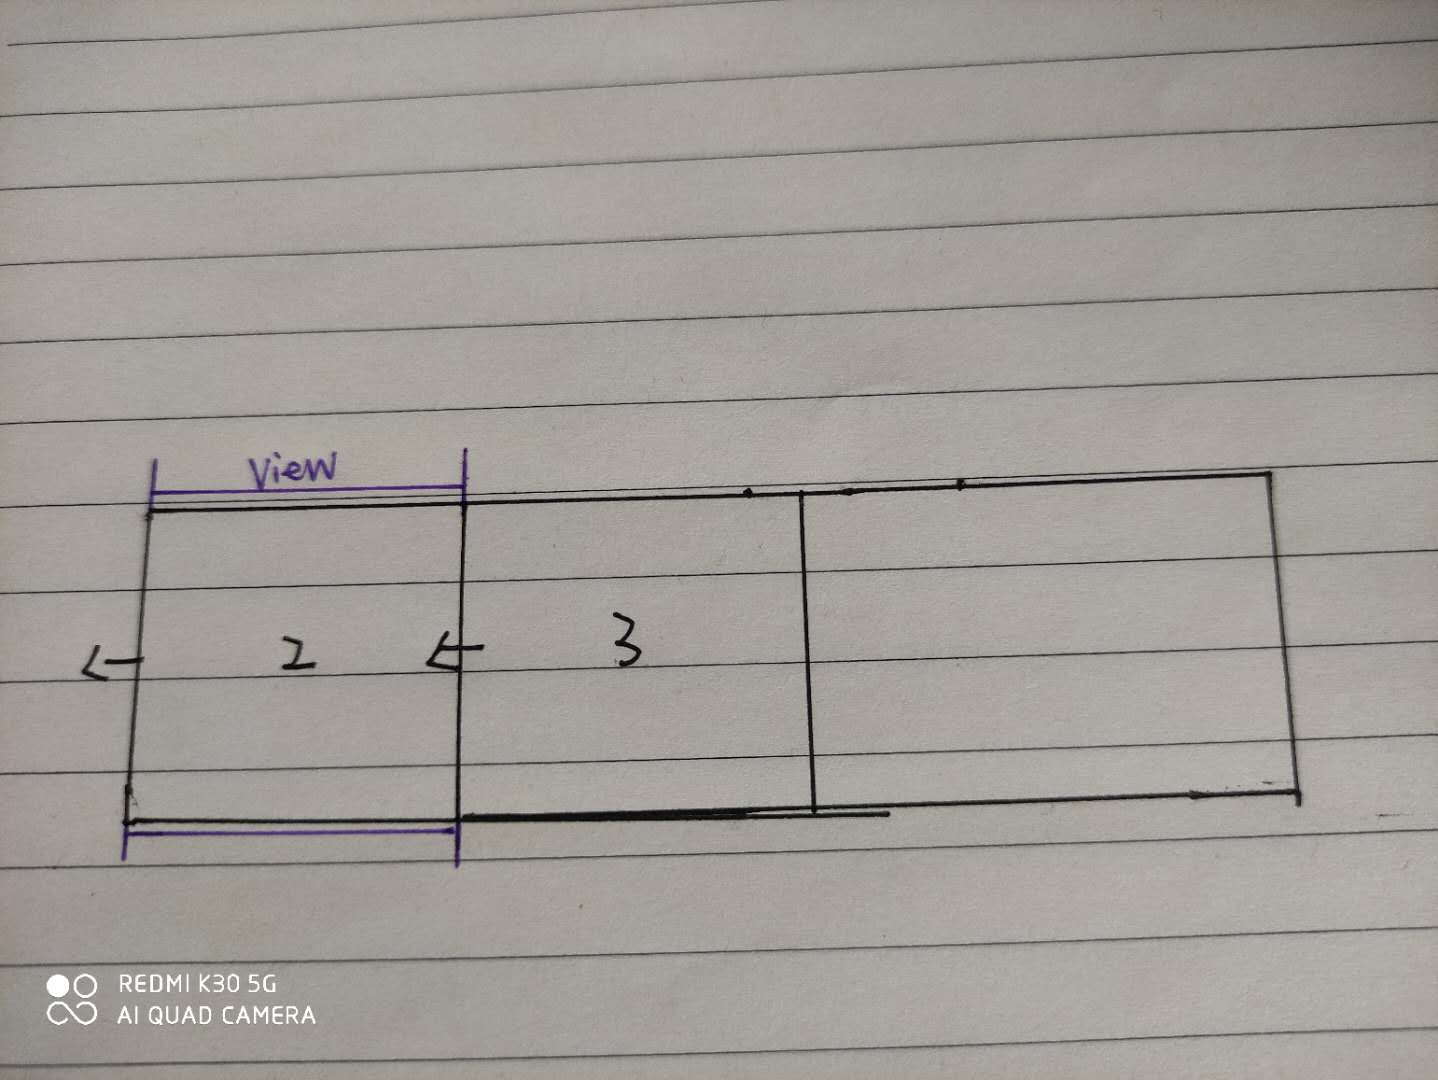 View
2
3
REDMI K30 5G
AI QUAD CAMERA